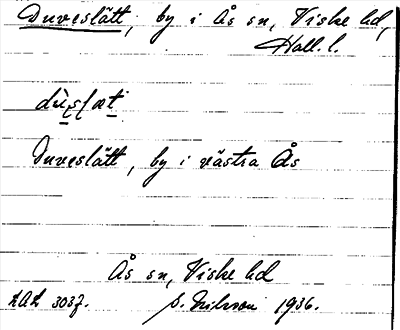 Duveslätt, by i Ås sn, Viske hd,
Hall. l.
Duveslätt, by i västra Ås
Ås sn, Viske hd
LAL 3037. S. Nilsson 1936.